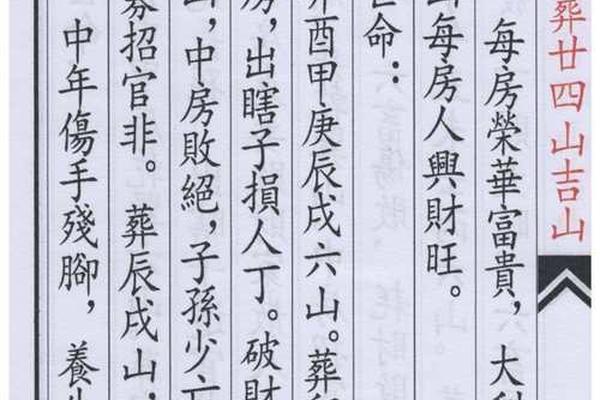 葬廿四山吉山
每房榮華富貴，大
山每房人興財旺。
命：
酉甲庚辰戌六山。葬
房，出瞎子損人丁。破財
，中房敗絕，子孫少亡
招官非。葬辰戌山，
中年傷手殘腳，養